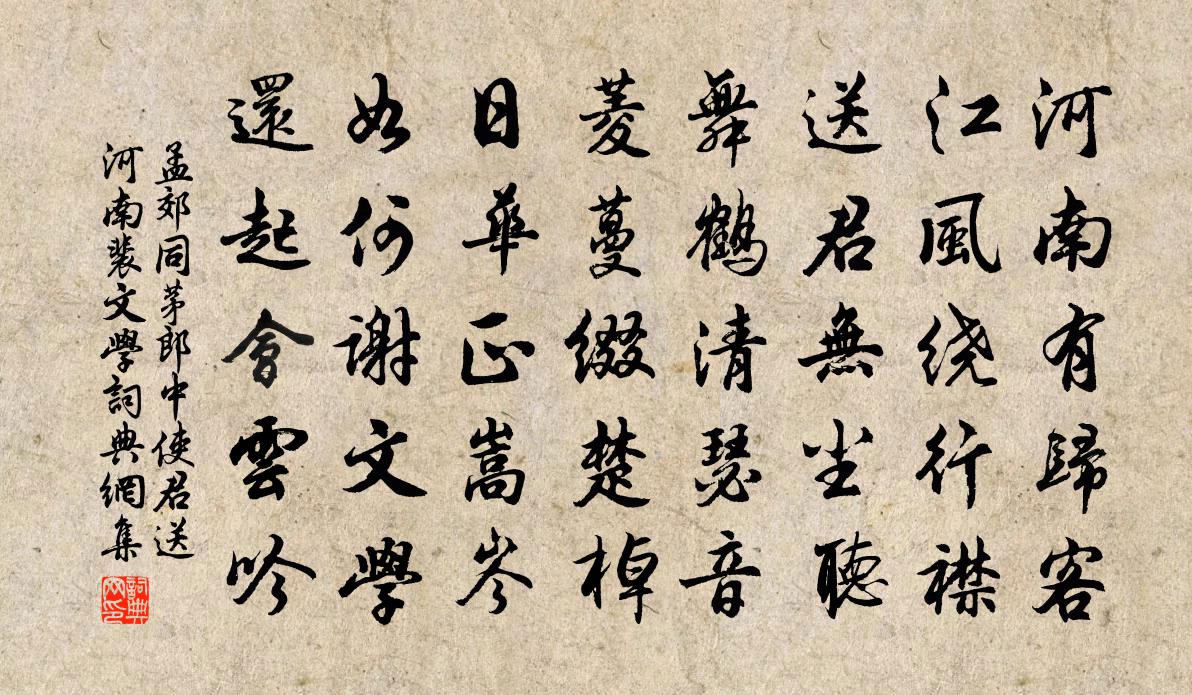 河南有歸客
江風绕行襟
送君無尘聽
舞鶴清瑟音
菱蔓缀楚棹
日華正嵩岑
如何謝文學
還起會雲吟
孟郊同茅郎中使君送
河南裴文學詞典網集
詞典
网印